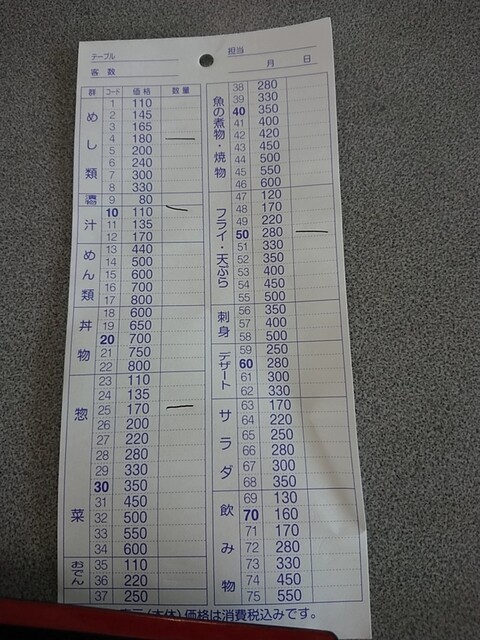 テーブル 担当
客 数 月 日
群 コード 価格 数量
めし類
1 110
2 145
3 165
4 180 一
5 200
6 240
7 300
8 330
9 80
汁
10 110 一
11 135
12 170
めん類
13 440
14 500
15 600
16 700
17 800
丼物
18 600
19 650
20 700
21 750
22 800
惣菜
23 110
24 135
25 170 一
26 200
27 220
28 280
29 330
30 350
31 450
32 500
33 550
34 600
おでん
35 110
36 220
37 250
魚の煮物・焼物
38 280
39 330
40 350
41 400
42 420
43 450
44 500
45 550
46 600
フライ・天ぷら
47 120
48 170
49 220
50 280 一
51 330
52 350
53 400
54 450
55 500
刺身
56 350
57 400
58 500
デザート
59 250
60 280
61 300
62 330
サラダ
63 170
64 220
65 250
66 280
67 300
68 350
飲み物
69 130
70 160
71 170
72 280
73 330
74 450
75 550
表示(本体)価格は消費税込みです。